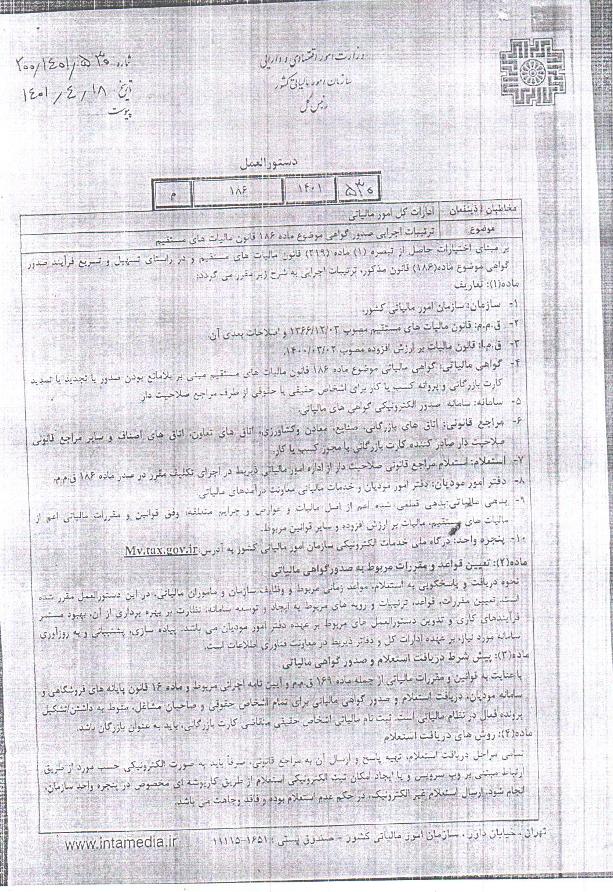 وزارت امور اقتصادی و دارایی
سازمان امور مالیاتی کشور
رئیس کل
شماره: ۲۰۰/۱۴۰۱/۵۳۰
تاریخ: ۱۴۰۱/۴/۱۸
پیوست:
دستورالعمل
۵۳۰ ۱۴۰۱ ۱۸۶ م
مخاطبان / ذینفعان ادارات کل امور مالیاتی
موضوع ترتیبات اجرایی صدور گواهی موضوع ماده ۱۸۶ قانون مالیات های مستقیم
بر مبنای اختیارات حاصل از تبصره (۱) ماده (۲۱۹) قانون مالیات های مستقیم و در راستای تسهیل و تسریع فرآیند صدور
گواهی موضوع ماده(۱۸۶) قانون مذکور، ترتیبات اجرایی به شرح زیر مقرر می گردد:
ماده(۱): تعاریف
۱- سازمان: سازمان امور مالیاتی کشور.
۲- ق.م.م: قانون مالیات های مستقیم مصوب ۱۳۶۶/۱۲/۰۳ و اصلاحات بعدی آن.
۳- ق.م.ا: قانون مالیات بر ارزش افزوده مصوب ۱۴۰۰/۰۳/۰۲.
۴- گواهی مالیاتی: گواهی مالیاتی موضوع ماده ۱۸۶ قانون مالیات های مستقیم مبنی بر بلامانع بودن صدور یا تجدید یا تمدید
کارت بازرگانی و پروانه کسب یا کار برای اشخاص حقیقی یا حقوقی از طرف مراجع صلاحیت دار
۵- سامانه: سامانه صدور الکترونیکی گواهی های مالیاتی.
۶- مراجع قانونی: اتاق های بازرگانی، صنایع، معادن وکشاورزی، اتاق های تعاون، اتاق های اصناف و سایر مراجع قانونی
صلاحیت دار صادر کننده کارت بازرگانی یا مجوز کسب یا کار
۷- استعلام: استعلام مراجع قانونی صلاحیت دار از اداره امور مالیاتی ذیربط در اجرای تکلیف مقرر در صدر ماده ۱۸۶ ق.م.م.
۸- دفتر امور مودیان: دفتر امور مودیان و خدمات مالیاتی معاونت درآمدهای مالیاتی
۹- بدهی مالیاتی:بدهی قطعی شده اعم از اصل مالیات و عوارض و جرایم متعلقه، وفق قوانین و مقررات مالیاتی اعم از
مالیات های مستقیم، مالیات بر ارزش افزوده و سایر قوانین مربوط.
۱۰- پنجره واحد: درگاه ملی خدمات الکترونیکی سازمان امور مالیاتی کشور به آدرس: My.tax.gov.ir
ماده(۲): تعیین قواعد و مقررات مربوط به صدورگواهی مالیاتی
نحوه دریافت و پاسخگویی به استعلام، مواعد زمانی مربوط و وظایف سازمان و ماموران مالیاتی، در این دستورالعمل مقرر شده
است. تعیین مقررات، قواعد، ترتیبات و رویه های مربوط به ایجاد و توسعه سامانه، نظارت بر بهره برداری از آن، بهبود مستمر
فرآیندهای کاری و تدوین دستورالعمل های مربوط بر عهده دفتر امور مودیان می باشد. پیاده سازی، پشتیبانی و به روزآوری
سامانه مورد نیاز، بر عهده ادارات کل و دفاتر ذیربط در معاونت فناوری اطلاعات است.
ماده(۳): پیش شرط دریافت استعلام و صدور گواهی مالیاتی
باعنایت به قوانین و مقررات مالیاتی از جمله ماده ۱۶۹ ق.م.م و آیین نامه اجرائی مربوط و ماده ۱۶ قانون پایانه های فروشگاهی و
سامانه مودیان، دریافت استعلام و صدور گواهی مالیاتی برای تمام اشخاص حقوقی و صاحبان مشاغل، منوط به داشتن/تشکیل
پرونده فعال در نظام مالیاتی است. ثبت نام مالیاتی اشخاص حقیقی متقاضی کارت بازرگانی، باید به عنوان بازرگان باشد.
ماده(۴): روش های دریافت استعلام
تمامی مراحل دریافت استعلام، تهیه پاسخ و ارسال آن به مراجع قانونی، صرفاً باید به صورت الکترونیکی حسب مورد از طریق
ارتباط مبتنی بر وب سرویس و یا ایجاد امکان ثبت الکترونیکی استعلام از طریق کارپوشه ای مخصوص در پنجره واحد سازمان،
انجام شود. ارسال استعلام غیر الکترونیک، در حکم عدم استعلام بوده و فاقد وجاهت می باشد.
تهران - خیابان داور - سازمان امور مالیاتی کشور - صندوق پستی: ۱۶۵۱-۱۱۱۱۵ www.intamedia.ir